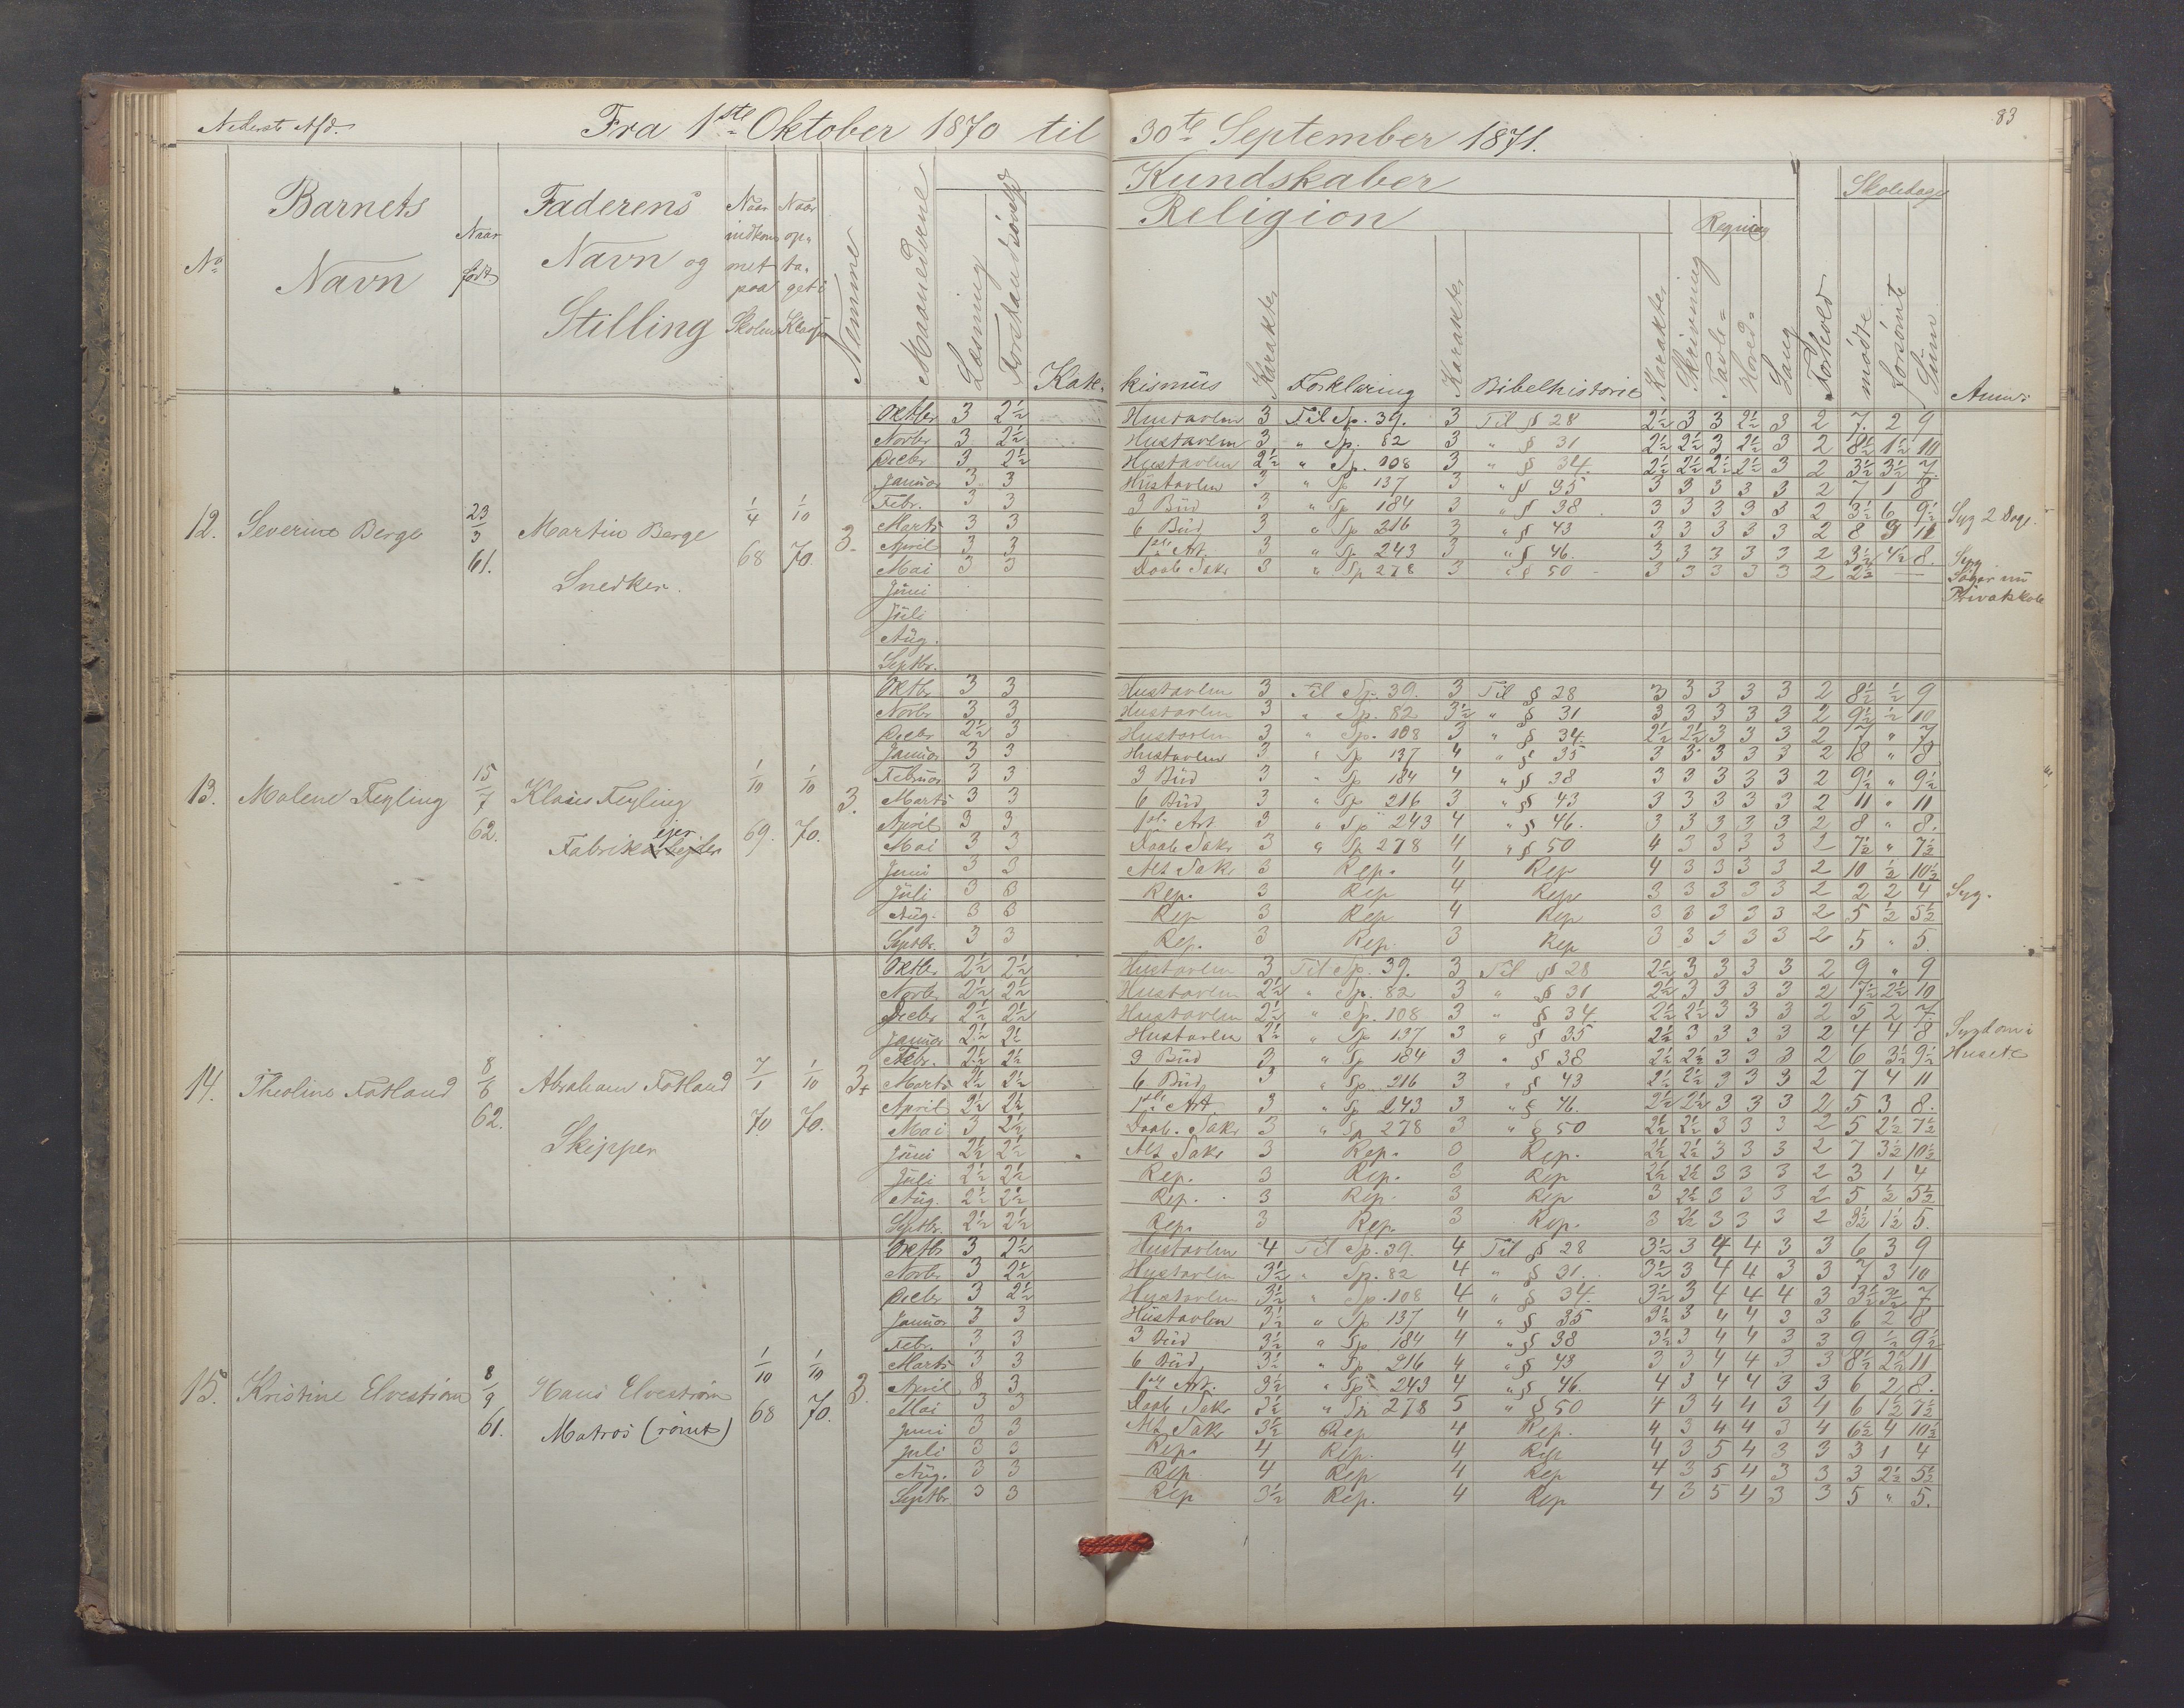 Nederste Afd.
Fra 1ste Oktober 1870 til 30te September 1871.
83
No
Barnets Navn
Naar født
Faderens Navn og Stilling
Naar indkommet paa Skolen
Naar optaget i Klassen
Nemme
Maanederne
Læsning
Forstandsøvelse
Kundskaber
Religion
Katekismus
Karakter
Forklaring
Karakter
Bibelhistorie
Karakter
Skrivning
Regning
Tavle-
Hoved-
Sang
Forhold
Skoledage
mødte
forsømte
Sum
Anm.
12. Severine Berge 23/3 61. Martin Berge Snedker. 1/4 68 1/10 70. 3.
Oktbr 3 2½ Hustavlen 3 Til Sp. 39. 3 Til § 28 2½ 3 3 2½ 3 2 7. 2 9
Novbr 3 2½ Hustavlen 3 " Sp. 82 3 " § 31 2½ 2½ 3 2½ 3 2 8½ 1½ 10
Decbr 3 2½ Hustavlen 2½ " Sp. 108 3 " § 34. 2½ 2½ 2½ 2½ 3 2 3½ 3½ 7.
Januar 3 3 Hustavlen 3 " Sp 137 3 " § 35 3 3 3 3 3 2 7 1 8
Febr. 3 3 3 Bud 3 " Sp 184 3 " § 38. 3 3 3 3 3 2 3½ 6 9½ Syg 2 Dage.
Marts 3 3 6 Bud 3 " Sp 216 3 " § 43 3 3 3 3 3 2 8 3 11
April 3 3 1ste Art. 3 " Sp 243 3 " § 46. 3 3 3 3 3 2 3½ 4½ 8. Syg
Mai 3 3 Daab Sakr 3 " Sp 278 3 " § 50 3 3 3 3 3 2 2½ — Søger nu Privatskole
Juni
Juli
Aug.
Septbr.
13. Malene Feyling 15/7 62. Klaus Feyling Fabrikejer 1/10 69. 1/10 70. 3.
Oktbr 3 3 Hustavlen 3 Til Sp. 39. 3 Til § 28 3 3 3 3 3 2 8½ ½ 9
Novbr 3 3 Hustavlen 3 " Sp. 82 3½ " § 31 3 3 3 3 3 2 9½ ½ 10
Decbr 2½ 3 Hustavlen 3 " Sp. 108 3 " § 34. 2½ 2½ 3 3 3 2 7 " 7
Januar 3 3 Hustavlen 3 " Sp 137 4 " § 35 3 3 3 3 3 2 8 " 8
Februar 3 3 3 Bud 3 " Sp 184 4 " § 38 3 3 3 3 3 2 9½ " 9½
Marts 3 3 6 Bud 3 " Sp 216 3 " § 43 3 3 3 3 3 2 11 " 11
April 3 3 1ste Art 3 " Sp 243 4 " § 46. 3 3 3 3 3 2 8 " 8.
Mai 3 3 Daab Sakr 3 " Sp 278 4 " § 50 4 3 3 3 3 2 7½ " 7½
Juni 3 3 Alt Sakr 3 Rep. 4 Rep 4 3 3 3 3 2 10 ½ 10½
Juli 3 3 Rep. 3 Rep 4 Rep 3 3 3 3 3 2 2 2 4 Syg.
Aug. 3 3 Rep 3 Rep 4 Rep 3 3 3 3 3 2 5 ½ 5½
Septbr. 3 3 Rep. 3 Rep. 3 Rep 3 3 3 3 3 2 5 " 5.
14. Theoline Fotland 8/8 62. Abraham Fotland Skipper 7/1 70 1/10 70. 3+
Oktbr 2½ 2½ Hustavlen 3 Til Sp. 39. 3 Til § 28 2½ 3 3 3 3 2 9 " 9
Novbr 2½ 2½ Hustavlen 2½ " Sp. 82 3 " § 31 2½ 3 3 3 3 2 7½ 2½ 10
Decbr 2½ 2½ Hustavlen 2½ " Sp. 108 3 " § 34 2½ 2½ 3 3 3 2 5 2 7.
Januar 2½ 2½ Hustavlen 2½ " Sp 137 3 " § 35 2½ 3 3 3 3 2 4 4 8 Sygdom i
Febr. 2½ 2½ 3 Bud 3 " Sp 184 3 " § 38 2½ 2½ 3 3 3 2 6 3½ 9½ Huset
Marts 2½ 2½ 6 Bud 3 " Sp. 216 3 " § 43 2½ 2½ 3 3 3 2 7 4 11
April 2½ 2½ 1ste Art. 3 " Sp 243 3 " § 46. 2½ 2½ 3 3 3 2 5 3 8.
Mai 3 2½ Daab. Sakr 3 " Sp 278 3 " § 50 2½ 2½ 3 3 3 2 5 2½ 7½
Juni 2½ 2½ Alt Sakr 3 Rep. 3 Rep. 2½ 2½ 3 3 3 2 7 3½ 10½
Juli 2½ 2½ Rep. 3 Rep. 3 Rep 2½ 2½ 3 3 3 2 3 1 4
Aug. 2½ 2½ Rep. 3 Rep. 3 Rep 3 2½ 3 3 3 2 5 ½ 5½
Septbr. 2½ 2½ Rep. 3 Rep. 3 Rep. 3 2½ 3 3 3 2 3½ 1½ 5.
15. Kristine Elvestrøm 8/9 61. Hans Elvestrøm Matros (rømt) 1/10 68 1/10 70. 3.
Oktbr 3 2½ Hustavlen 4 Til Sp. 39. 4 Til § 28 3½ 3 4 4 3 3 6 3 9
Novbr 3 2½ Hustavlen 3½ " Sp. 82 4 " § 31. 3½ 3 4 4 3 3 7 3 10
Decbr 3 2½ Hustavlen 3½ " Sp. 108 4 " § 34. 3½ 3 4 4 4 3 3½ 3½ 7
Januar 3 3 Hustavlen 3½ " Sp 137 4 " § 35 3½ 3 4 4 3 3 6 2 8
Febr. 3 3 3 Bud 3½ " Sp 184 4 " § 38 3½ 3 4 4 3 3 9 ½ 9½
Marts 3 3 6 Bud 3½ " Sp 216 4 " § 43 3 3 4 4 3 3 8½ 2½ 11
April 3 3 1ste Art. 3½ " Sp 243 4 " § 46. 4 3 4 4 3 3 6 2 8.
Mai 3 3 Daab Sakr 3½ " Sp 278 5 " § 50 4 3 4 4 3 4 6 1½ 7½
Juni 3 3 Alt Sakr 3½ Rep 4 Rep. 4 3 4 4 3 4 6½ 4 10½
Juli 3 3 Rep. 4 Rep. 4 Rep 4 3 5 4 3 3 3 1 4
Aug. 3 3 Rep 4 Rep 4 Rep 4 3 5 4 3 3 3 2½ 5½
Septbr 3 3 Rep 3½ Rep. 4 Rep 4 3 5 4 3 3 5 " 5.